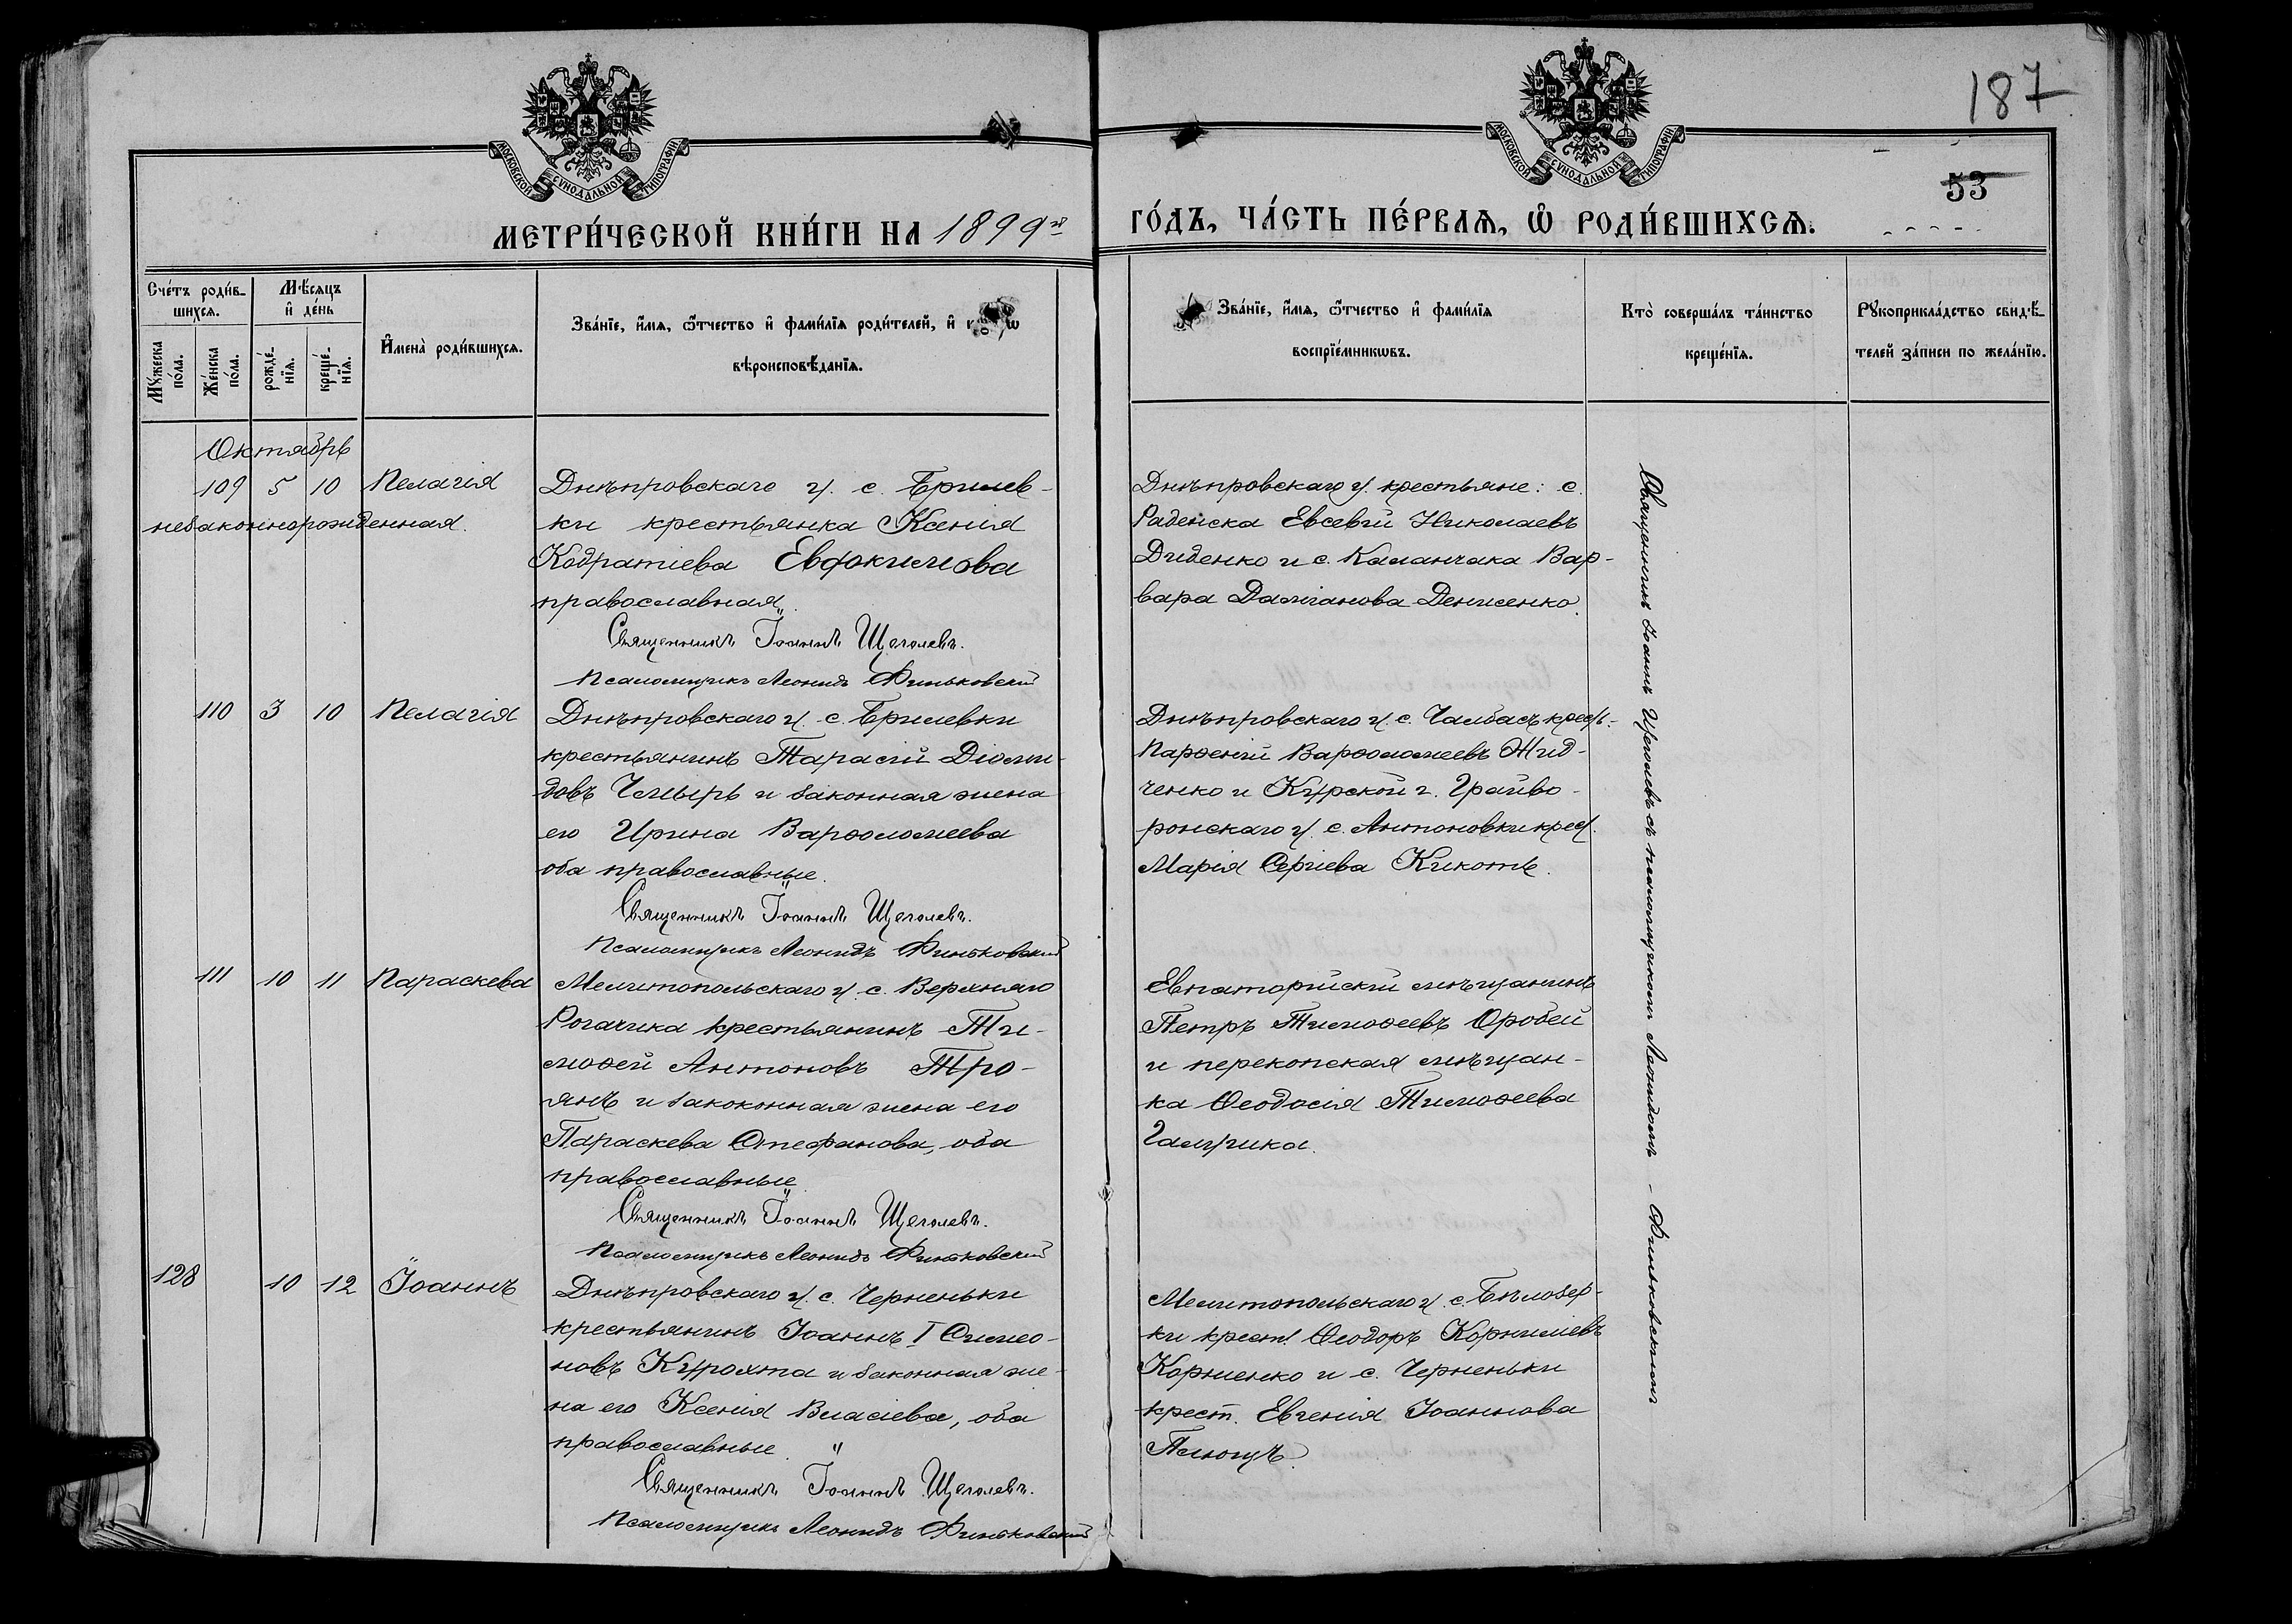 187
МОСКОВСКОЙ СѴНОДАЛЬНОЙ ТИПОГРАФІИ
МОСКОВСКОЙ СѴНОДАЛЬНОЙ ТИПОГРАФІИ
53
МЕТРИ́ЧЕСКОЙ КНИ́ГИ НА 1899й
ГО́ДЪ, ЧА́СТЬ ПЕ́РВАѦ, Ѽ РОДИ́ВШИХСѦ.
Сче́тъ роди́в-
шихсѧ.
Мѣ́сѧцъ
и҆ де́нь
Мꙋ́жеска
по́ла.
Же́нска
по́ла.
рожде́-
нїѧ.
креще́-
нїѧ.
И҆мена̀ роди́вшихсѧ.
Зва́нїе, и҆́мѧ, ѻ҆́тчество и҆ фами́лїѧ роди́телей, и҆
вѣроисповѣ́данїѧ.
Зва́нїе, и҆́мѧ, ѻ҆́тчество и҆ фами́лїѧ
воспрїе́мникѡвъ.
Кто̀ соверша́лъ та́инство
креще́нїѧ.
Рꙋкоприкла́дство свидѣ́-
телей за́писи по жела́нїю.
Октябрь
109 5 10 Пелагія
незаконнорожденная.
Днѣпровскаго у. с. Брилев-
ки крестьянка Ксенія
Кодратіева Евдокимова
православная.
Священникъ Іоаннъ Щеголевъ.
Псаломщикъ Леонидъ Финьковскій
Днѣпровскаго у. крестьяне: с.
Раденска Евсевій Николаевъ
Диденко и с. Каланчака Вар-
вара Даміанова Денисенко.
110 3 10 Пелагія
Днѣпровскаго у. с. Брилевки
крестьянинъ Тарасій Діоми-
довъ Чмырь и законная жена
его Ирина Варѳоломеева
оба православные.
Священникъ Іоаннъ Щеголевъ.
Псаломщикъ Леонидъ Финьковскій
Днѣпровскаго у. с. Чалбасъ крест.
Парѳеній Варѳоломеевъ Жид-
ченко и Курской г. Грайво-
ронскаго у. с. Антоновки крест.
Марія Сергіева Кикоть.
111 10 11 Параскева
Мелитопольскаго у. с. Верхняго
Рогачика крестьянинъ Ти-
моѳей Антоновъ Тро-
янъ и закоконная жена его
Параскева Стефанова, оба
православные
Священникъ Іоаннъ Щеголевъ.
Псаломщикъ Леонидъ Финьковскій
Евпаторійскій мѣщанинъ
Петръ Тимоѳеевъ Оробей
и перекопская мѣщан-
ка Ѳеодосія Тимоѳеева
Галушка.
128 10 12 Іоаннъ
Днѣпровскаго у. с. Черненьки
крестьянинъ Іоаннъ I Симео-
новъ Курохта и законная же-
на его Ксенія Власіева, оба
православные.
Священникъ Іоаннъ Щеголевъ.
Псаломщикъ Леонидъ Финьковскій
Мелитопольскаго у. с. Бѣлозер-
ки крест. Ѳеодоръ Корниліевъ
Корніенко и с. Черненьки
крест. Евгенія Іоаннова
Плющъ.
Священникъ Іоаннъ Щеголевъ съ псаломщикомъ Леонидомъ - Финьковскимъ